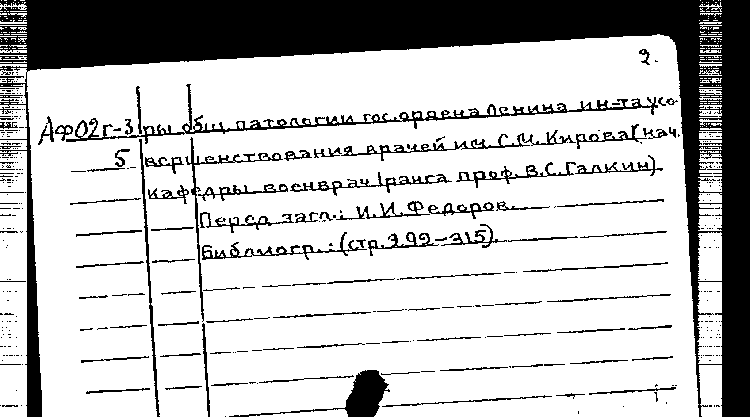 2.
АФ02г-3 ры общ. патологии гос. ордена Ленина ин-та усо-
5 вершенствования врачей им. С.М. Кирова (нач.
кафедры военврач I ранга проф. В.С. Галкин).
Перед загл.: И.И. Федоров.
Библиогр.: (стр. 299-315).